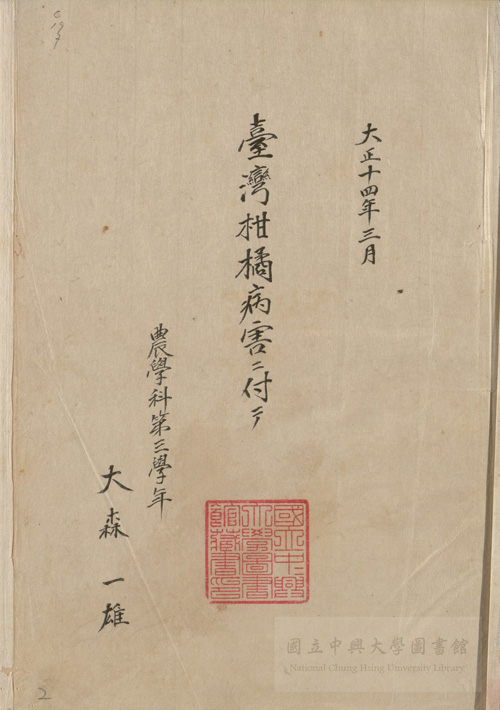 大正十四年三月
臺灣柑橘病害ニ付テ
農學科第三學年
大森一雄
國立中興
大學圖書
館藏書章
國立中興大學圖書館
National Chung Hsing University Library
2